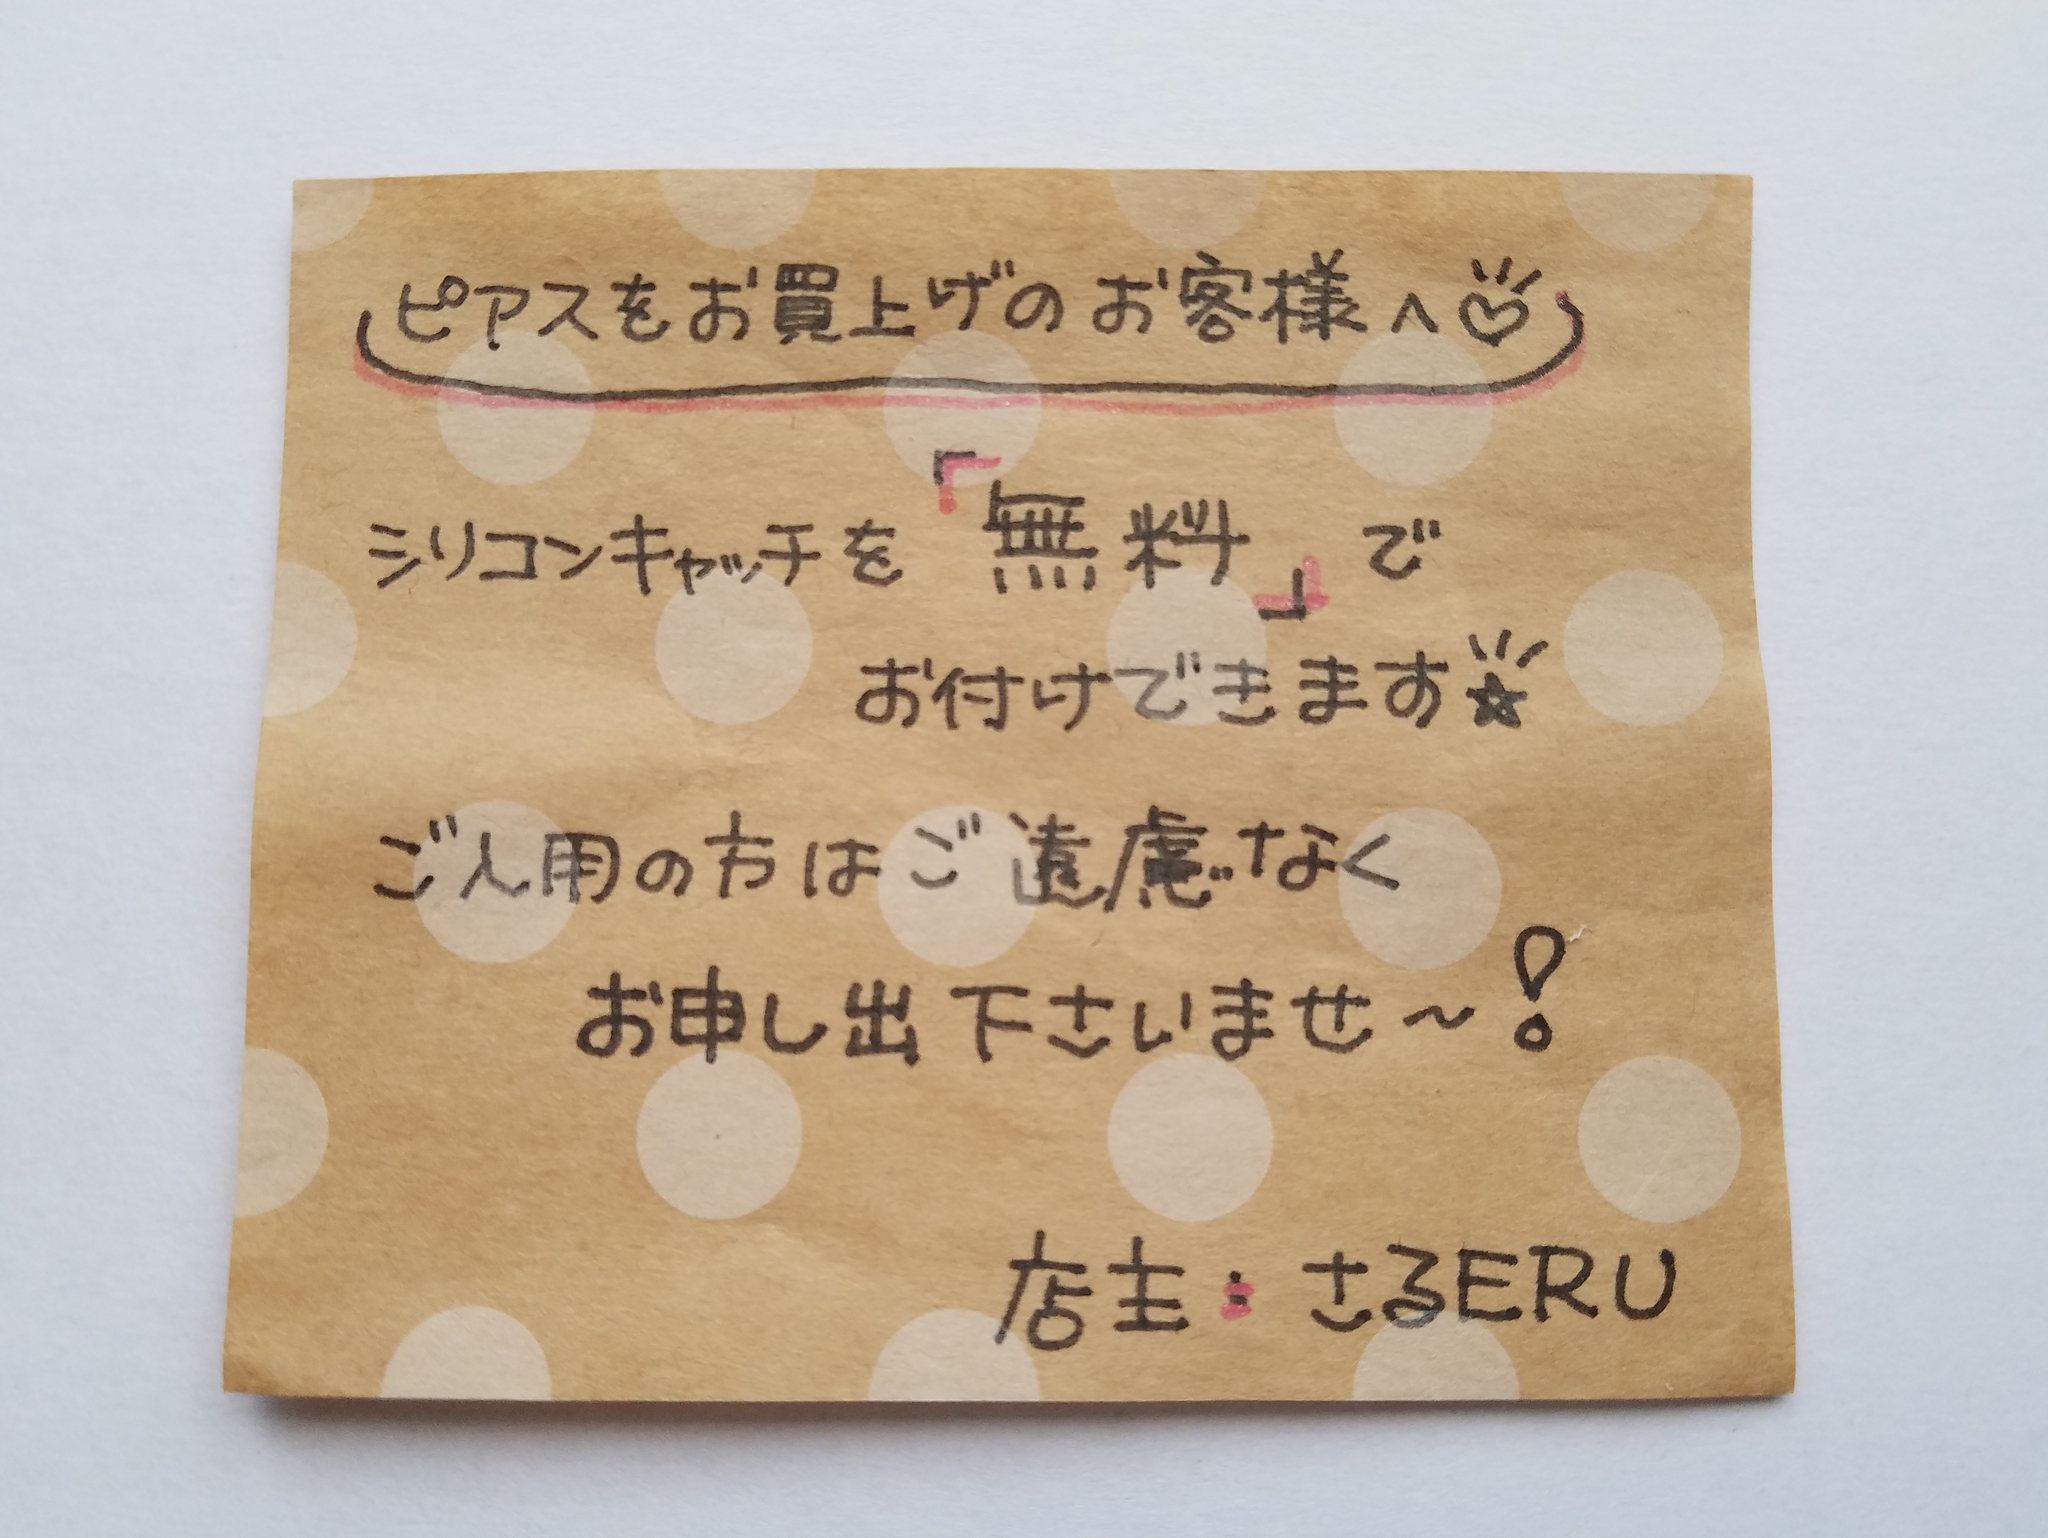 ピアスをお買上げのお客様へ♡
シリコンキャッチを「無料」で
お付けできます☆
ご入用の方はご遠慮なく
お申し出下さいませ～!
店主:さるERU